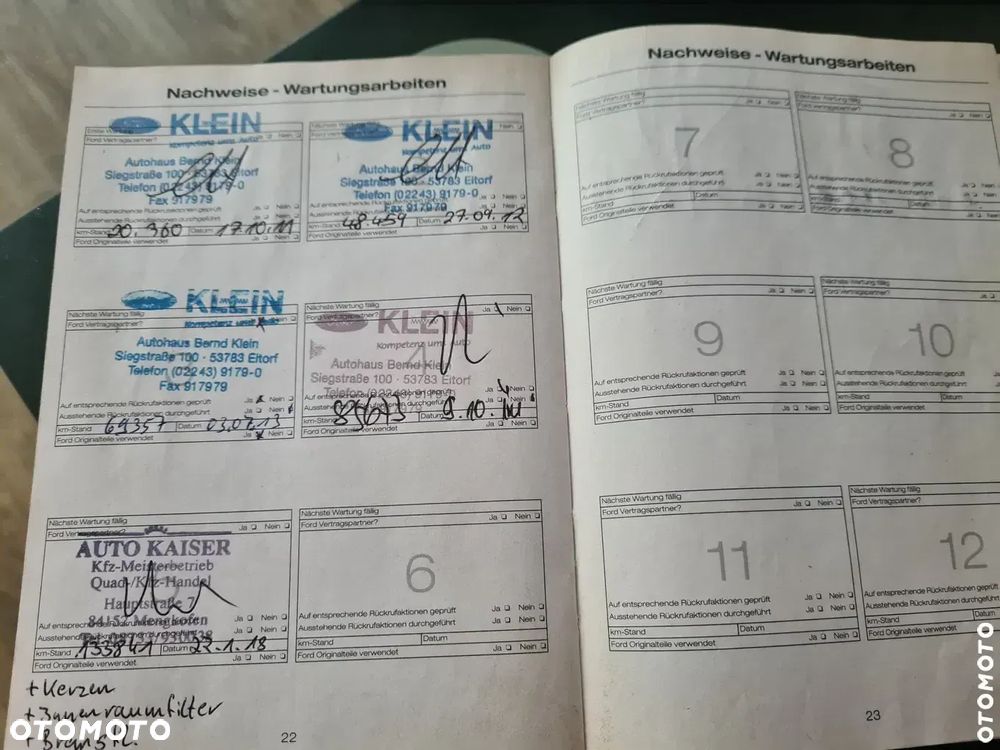 Nachweise - Wartungsarbeiten
Erste Wartung
Ford Vertragspartner? Ja Nein
KLEIN
Kompetenz ums Auto
Autohaus Bernd Klein
Siegstraße 100 · 53783 Eitorf
Telefon (02243) 9179-0
Fax 917979
Auf entsprechende Rückrufaktionen geprüft Ja Nein
Ausstehende Rückrufaktionen durchgeführt Ja Nein
km-Stand 20.360 Datum 17.10.11
Ford Originalteile verwendet Ja Nein
Nächste Wartung fällig
Ford Vertragspartner? Ja Nein
KLEIN
Kompetenz ums Auto
Autohaus Bernd Klein
Siegstraße 100 · 53783 Eitorf
Telefon (02243) 9179-0
Fax 917979
km-Stand 48.459 Datum 27.09.12
Ford Originalteile verwendet Ja Nein
Nächste Wartung fällig
Ford Vertragspartner? Ja Nein
KLEIN
Kompetenz ums Auto
Autohaus Bernd Klein
Siegstraße 100 · 53783 Eitorf
Telefon (02243) 9179-0
Fax 917979
Auf entsprechende Rückrufaktionen geprüft Ja Nein
Ausstehende Rückrufaktionen durchgeführt Ja Nein
km-Stand 69357 Datum 03.07.13
Ford Originalteile verwendet Ja Nein
Nächste Wartung fällig
Ford Vertragspartner? Ja Nein
KLEIN
Kompetenz ums Auto
4
Autohaus Bernd Klein
Siegstraße 100 · 53783 Eitorf
Telefon (02243) 9179-0
Ja Nein
km-Stand 85673 Datum 9.10.
Ford Originalteile verwendet Ja Nein
Nächste Wartung fällig
Ford Vertragspartner? Ja Nein
AUTO KAISER
Kfz-Meisterbetrieb
Quad-/Kfz-Handel
Hauptstraße 7
84152 Mengkofen
km-Stand 133841 Datum 22.1.18
Ford Originalteile verwendet Ja Nein
Nächste Wartung fällig
Ford Vertragspartner? Ja Nein
6
Auf entsprechende Rückrufaktionen geprüft Ja Nein
Ausstehende Rückrufaktionen durchgeführt Ja Nein
km-Stand Datum
Ford Originalteile verwendet Ja Nein
+ Kerzen
+ Innenraumfilter
22
Nachweise - Wartungsarbeiten
Nächste Wartung fällig
Ford Vertragspartner? Ja Nein
7
Auf entsprechende Rückrufaktionen geprüft Ja Nein
Ausstehende Rückrufaktionen durchgeführt Ja Nein
km-Stand Datum
Ford Originalteile verwendet Ja Nein
Nächste Wartung fällig
Ford Vertragspartner? Ja
8
Auf entsprechende Rückrufaktionen geprüft Ja
Ausstehende Rückrufaktionen durchgeführt Ja
km-Stand
Ford Originalteile verwendet
Nächste Wartung fällig
Ford Vertragspartner? Ja Nein
9
Auf entsprechende Rückrufaktionen geprüft Ja Nein
Ausstehende Rückrufaktionen durchgeführt Ja Nein
km-Stand Datum
Ford Originalteile verwendet Ja Nein
Nächste Wartung fällig
Ford Vertragspartner? Ja
10
Auf entsprechende Rückrufaktionen geprüft
Ausstehende Rückrufaktionen durchgeführt
km-Stand Datum
Ford Originalteile verwendet
Nächste Wartung fällig
Ford Vertragspartner? Ja Nein
11
Auf entsprechende Rückrufaktionen geprüft Ja Nein
Ausstehende Rückrufaktionen durchgeführt Ja Nein
km-Stand Datum
Ford Originalteile verwendet Ja Nein
Nächste Wartung fällig
Ford Vertragspartner?
12
Auf entsprechende Rückrufaktionen geprüft
Ausstehende Rückrufaktionen durchgeführt
km-Stand Datum
Ford Originalteile verwendet
23
OTOMOTO
OTOMOTO
OTOMOTO
OTOMOTO